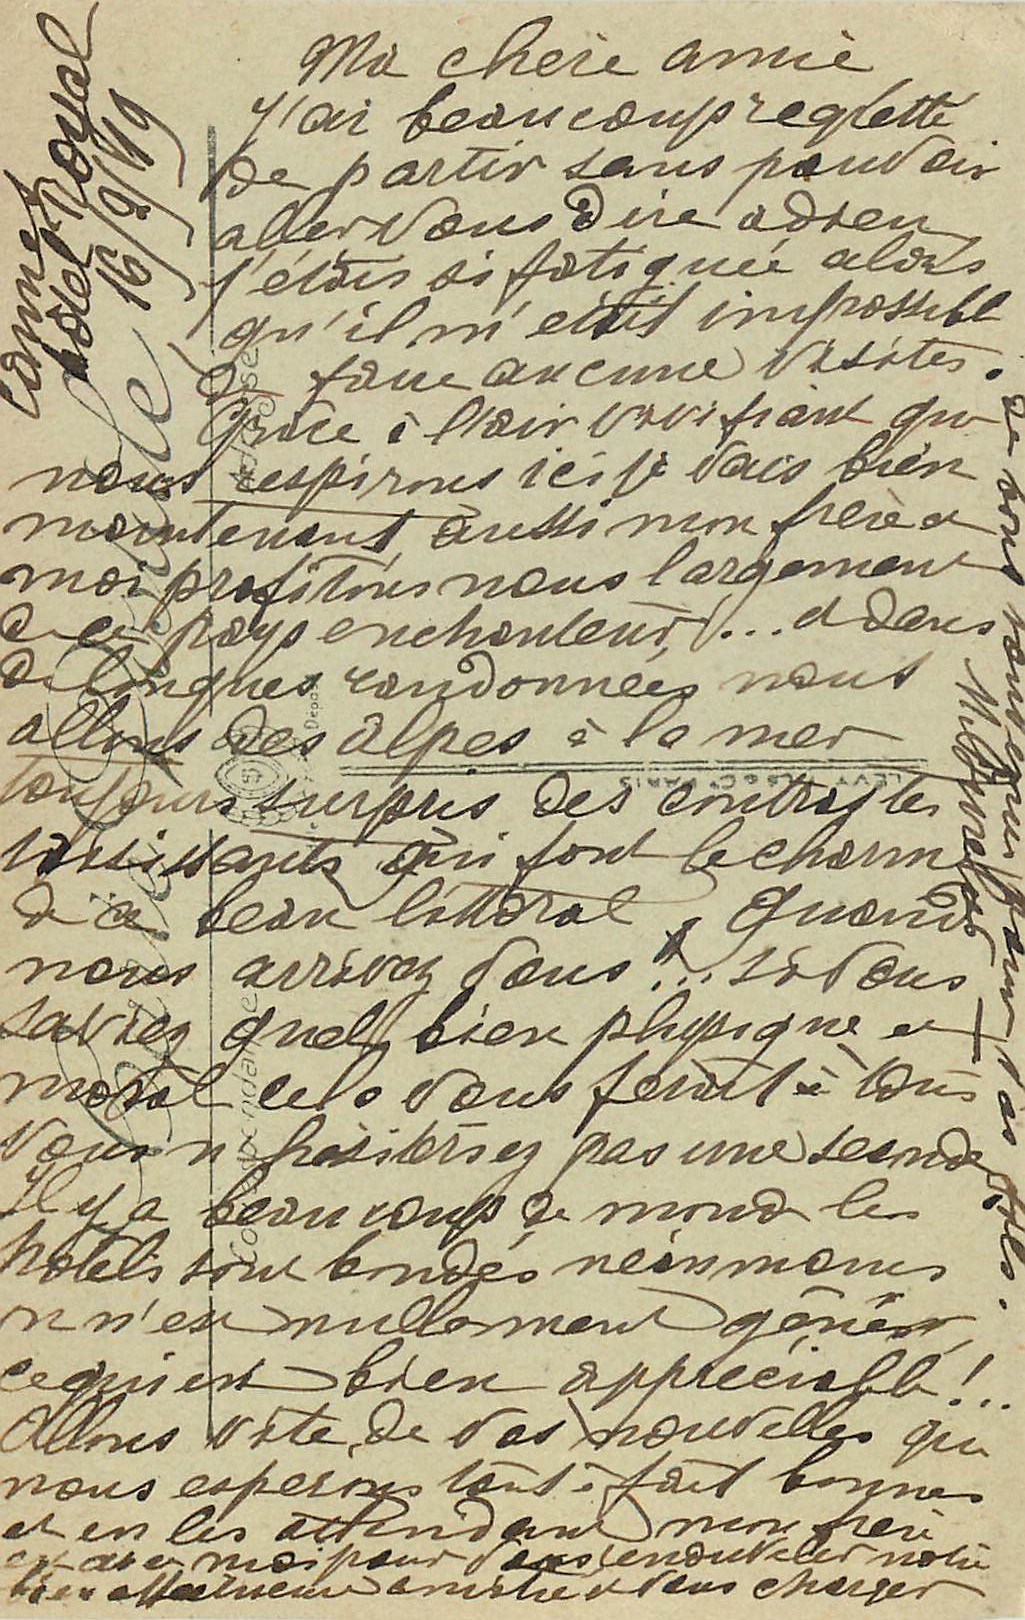 Cannes
hôtel Royal
16/9/19
Ma chère amie
J'ai beaucoup regletté
de partir sans pouvoir
aller vous dire adieu
j'étais si fatiguée alors
qu'il m'était impossibl
de faire aucune visites.
Grâce à l'air vivifiant que
nous respirons ici je vais bien
maintenant, aussi mon frère et
moi profitons nous largement
de ce pays enchanteur, ... et dans
de longues randonnées nous
allons des alpes à la mer
toujours surpris des contrastes
saisissants qui font le charme
de ce beau littoral, Quand
nous arrivez vous ?... si vous
saviez quel bien physique et
moral cela vous ferait à tous
vous n'hésiteriez pas une seconde
Il y a beaucoup de monde les
hotels sont bondés néanmoins
on n'est nullement gêné
ce qui est bien appréciable !...
Allons vite, de vos nouvelles que
nous esperons tout à fait bonnes
et en les attendant mon frère
moi pour vous renouveler notre
bien affectueuse amitié et vous charger
de nos souvenirs pour
Correspondance
Adresse
LEVY FILS & Cie PARIS